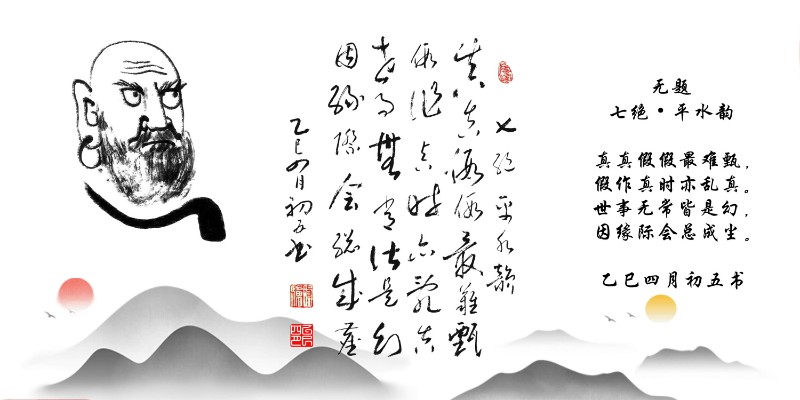 七绝 平水韵
真真假假最难甄
假作真时亦乱真
世事无常皆是幻
因缘际会总成尘
乙巳四月初五书
无题
七绝·平水韵
真真假假最难甄，
假作真时亦乱真。
世事无常皆是幻，
因缘际会总成尘。
乙巳四月初五书